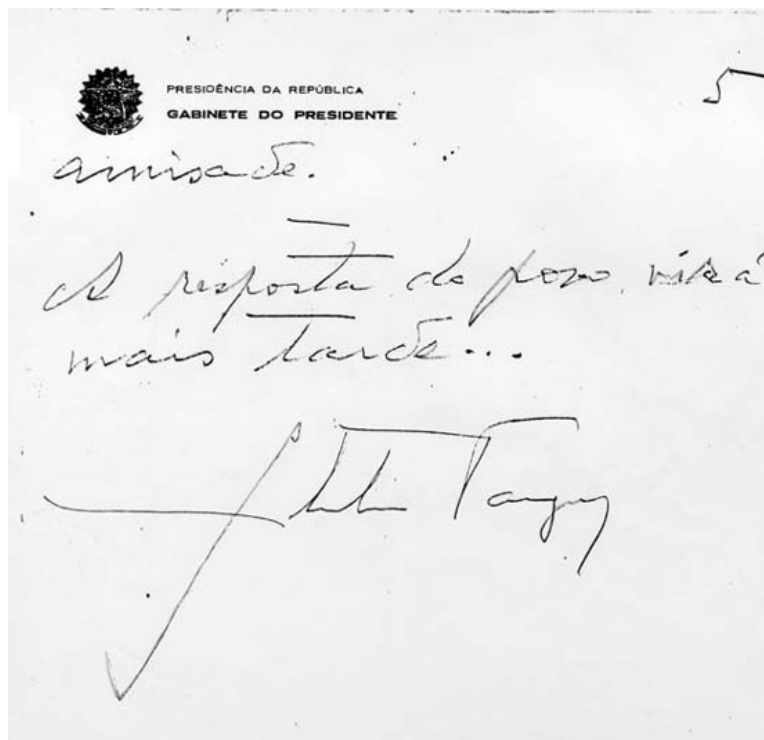 PRESIDÊNCIA DA REPÚBLICA
GABINETE DO PRESIDENTE
5
amisade.
A resposta do povo virá
mais tarde...
Getulio Vargas